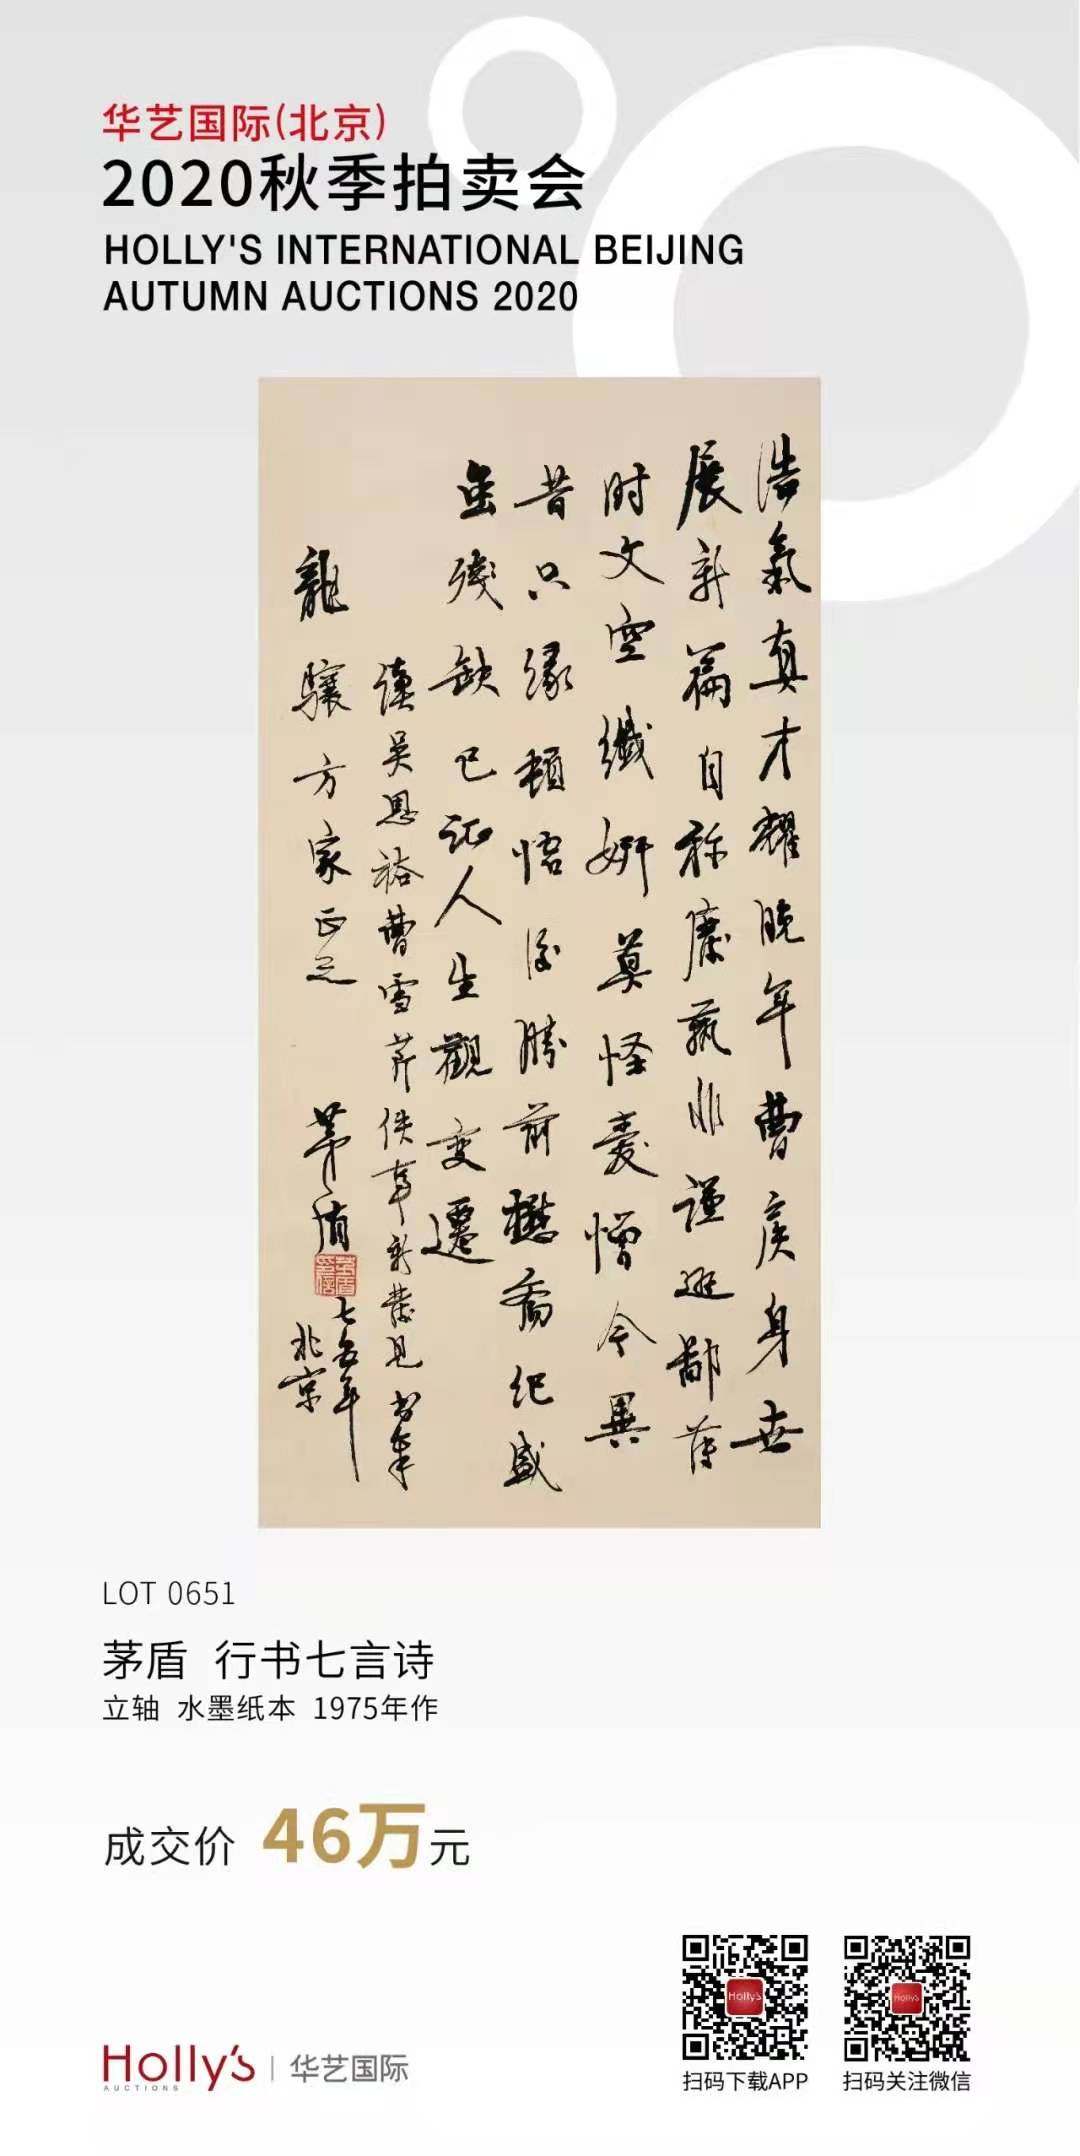 华艺国际(北京)
2020秋季拍卖会
HOLLY'S INTERNATIONAL BEIJING
AUTUMN AUCTIONS 2020
浩氣真才耀晚年曹侯身世
展新篇自称廢藝非謹遜鄙薄
时文空纖妍莫怪愛憎今異
昔只缘頓悟后勝前懋斋纪盛
虽残缺已证人生觀变遷
读吴恩裕曹雪芹佚事新發见书奉
龍驤方家正之
茅盾
七五年
北京
LOT 0651
茅盾 行书七言诗
立轴 水墨纸本 1975年作
成交价 46万元
Holly's
AUCTIONS
华艺国际
Holly's
Holly's
扫码下载APP
扫码关注微信